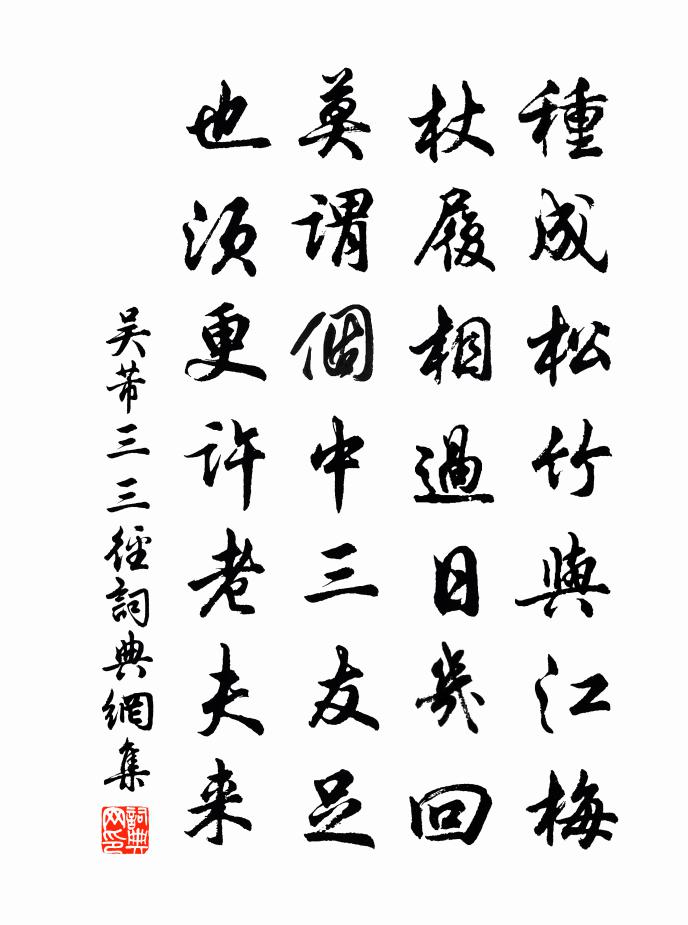 種成松竹與江梅
杖履相過日幾回
莫謂個中三友足
也須更許老夫来
吴芾三三徑詞典網集
詞典網印